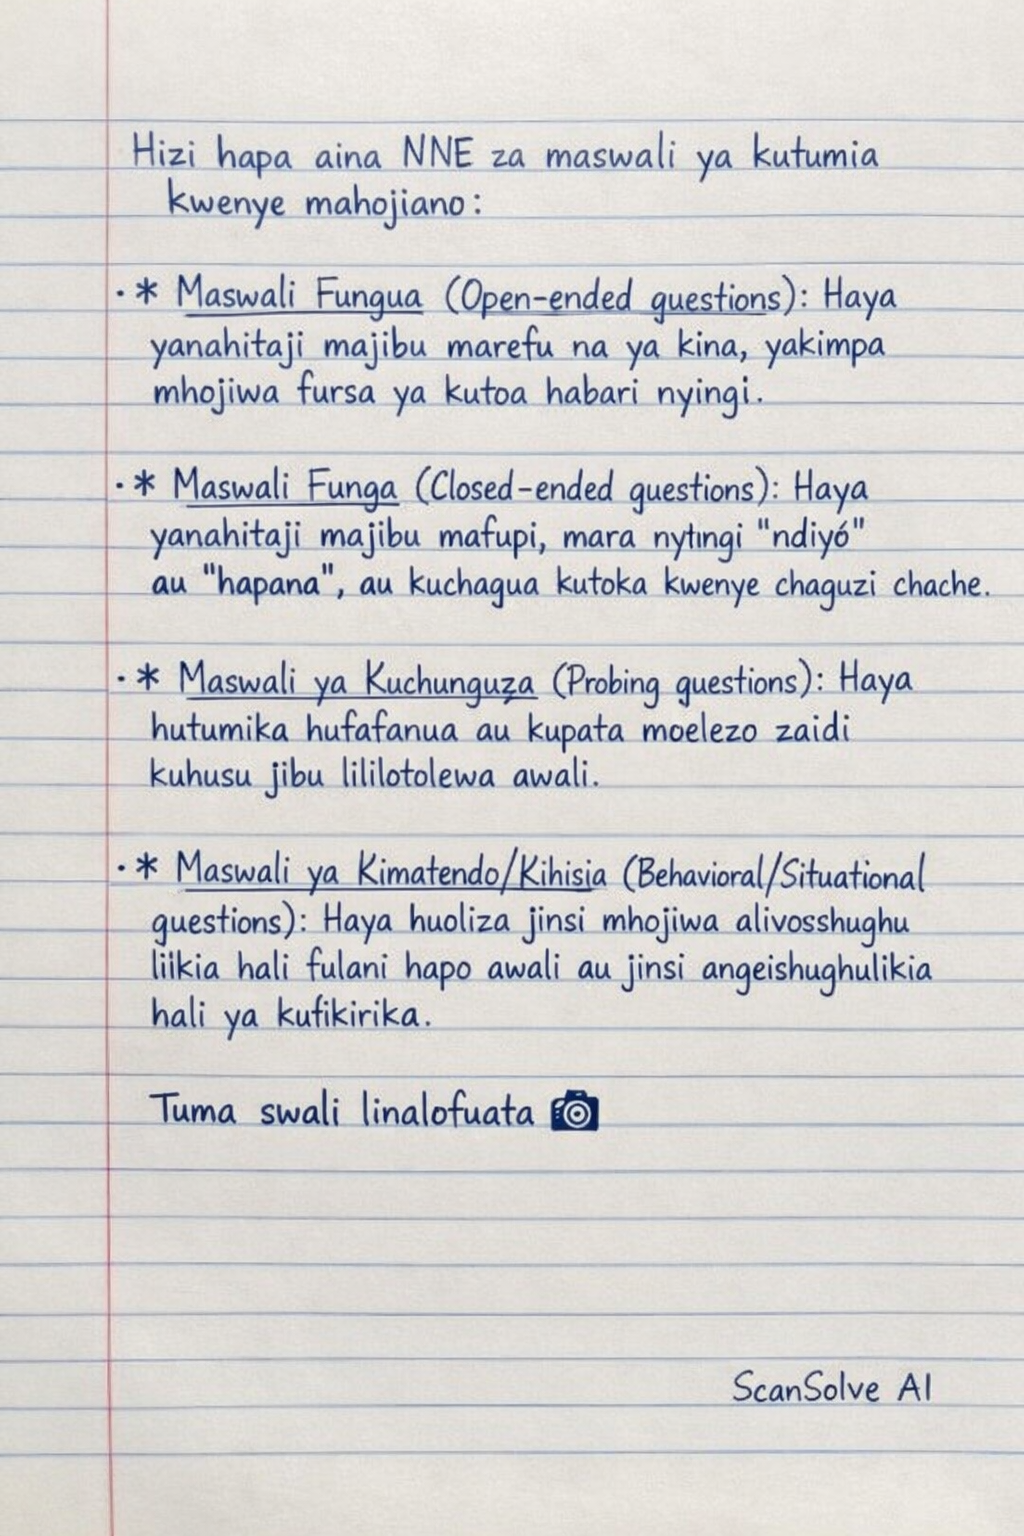 Hizi hapa aina NNE za maswali ya kutumia
kwenye mahojiano:
· * Maswali Fungua (Open-ended questions): Haya
yanahitaji majibu marefu na ya kina, yakimpa
mhojiwa fursa ya kutoa habari nyingi.
· * Maswali Funga (Closed-ended questions): Haya
yanahitaji majibu mafupi, mara nytıngi "ndiyó"
au "hapana", au kuchagua kutoka kwenye chaguzi chache.
· * Maswali ya Kuchunguza (Probing questions): Haya
hutumika hufafanua au kupata moelezo zaidi
kuhusu jibu lililotolewa awali.
· * Maswali ya Kimatendo/Kihisia (Behavioral/Situational
questions): Haya huoliza jinsi mhojiwa alivosshughu
liikia hali fulani hapo awali au jinsi angeishughulikia
hali ya kufikirika.
Tuma swali linalofuata
ScanSolve AI